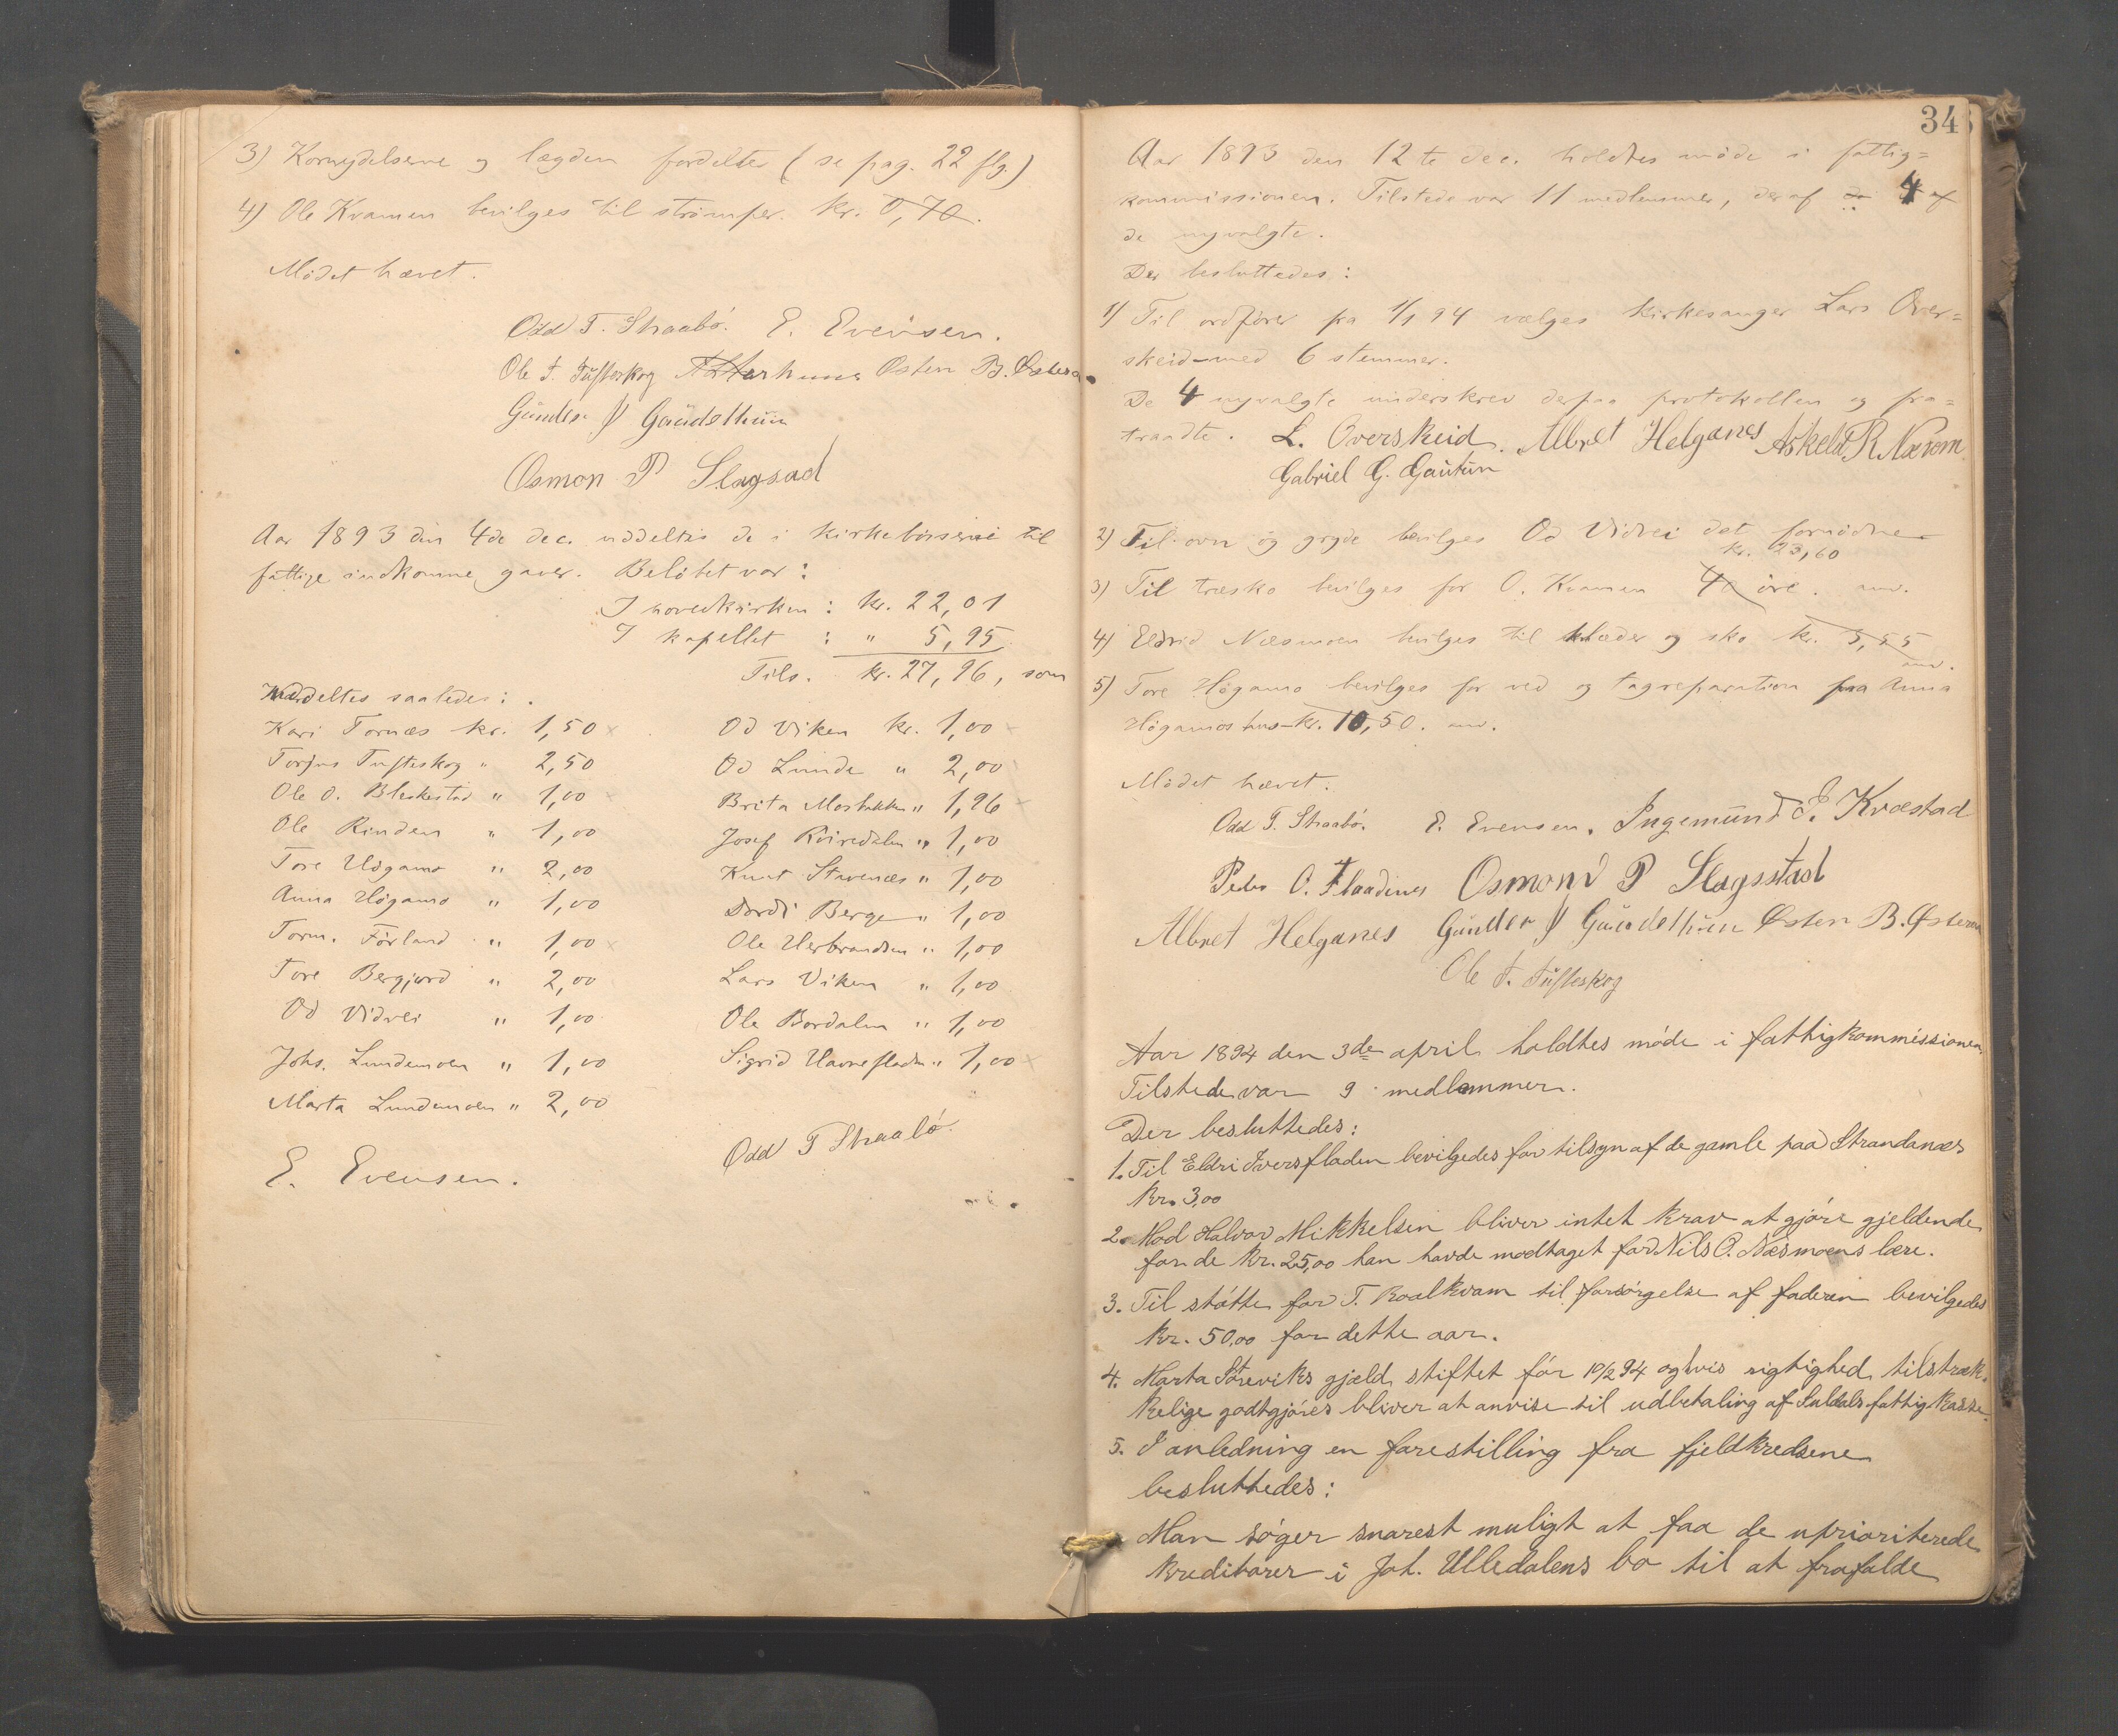 3) Kornydelserne og lægden fordeltes (se pag. 22 flg.)
4) Ole Kvamen bevilges til strömper. kr. 0,70.
Mödet hævet.
Odd T. Straabó. E. Evensen.
Ole T. Tüfteskog Østen B. Østerå
Günder J Gaudethün
Osmon P Slagsad
Aar 1893 den 4de dec. uddeltes de i kirkebösserne til
fattige indkomne gaver. Belöbet var:
I hovedkirken: kr. 22,01
I kapellet : " 5,95
Tils. kr. 27,96, som
uddeltes saaledes:
Kari Tornæs kr. 1,50
Torjus Tufteskog " 2,50
Ole O. Bleskestad " 1,00
Ole Rinden " 1,00
Tore Högamo " 2,00
Anna Högamo " 1,00
Torm. Förland " 1,00
Tore Bergjord " 2,00
Od Vidvei " 1,00
Johs. Lundemoen " 1,00
Marta Lundemoen " 2,00
Od Viken kr. 1,00
Od Lunde " 2,00
Brita Mosbakken " 1,96
Josef Kviredalen " 1,00
Knut Stavenæs " 1,00
Dordi Berge " 1,00
Ole Herbrandsen " 1,00
Lars Viken " 1,00
Ole Bordalen " 1,00
Sigrid Havrefladen " 1,00
E. Evensen.
Odd T Straabó.
34
Aar 1893 den 12te dec. holdtes möde i fattig=
kommissionen. Tilstede var 11 medlemmer, deraf 4 af
de nyvalgte.
Der besluttedes:
1) Til ordförer fra 1/1 94 vælges kirkesanger Lars Over=
skeid med 6 stemmer.
De 4 nyvalgte underskrev derpaa protokollen og fra=
traadte. L. Overskeid. Albret Helganes Askeld R Nærem
Gabriel G. Gautun
2) Til ovn og gryde bevilges Od Vidvei det fornödne
kr. 23,60
3) Til træsko bevilges for O. Kvamen 40 öre. anv.
4) Eldrid Næsmoen bevilges til klæder og sko kr. 3,55
anv.
5) Tore Högamo bevilges for ved og tagreparation paa Anna
Högamos hus kr. 10,50. anv.
Mödet hævet.
Odd T. Straabó. E. Evensen. Ingemund E. Kvæstad
Peder O. Flaadines Osmond P Slagsstad
Albret Helganes Günder J Gaudethün Østen B. Østerå
Ole T. Tüfteskog
Aar 1894 den 3de april holdtes móde i fattigkommissionen
Tilstede var 9 medlemmer.
Der besluttedes:
1. Til Eldri Iversfladen bevilgedes for tilsyn af de gamle paa Strandanæs
Kr. 3,00
2. Mod Halvor Mikkelsen bliver intet krav at gjóre gjeldende
for de kr. 25,00 han havde modtaget for Nils O. Næsmoens lære.
3. Til stótte for T. Roalkvam til forsórgelse af faderen bevilgedes
kr. 50,00 for dette aar.
4. Marta Sóreviks gjæld, stiftet fór 10/2 94 og hvis rigtighed tilstræk.
kelige godtgjóres bliver at anvise til udbetaling af Suldals fattigkasse.
5. I anledning en forestilling fra fjeldkredsene
besluttedes:
Man sóger snarest muligt at faa de uprioriterede
kreditorer i Joh. Ulledalens bo til at frafalde